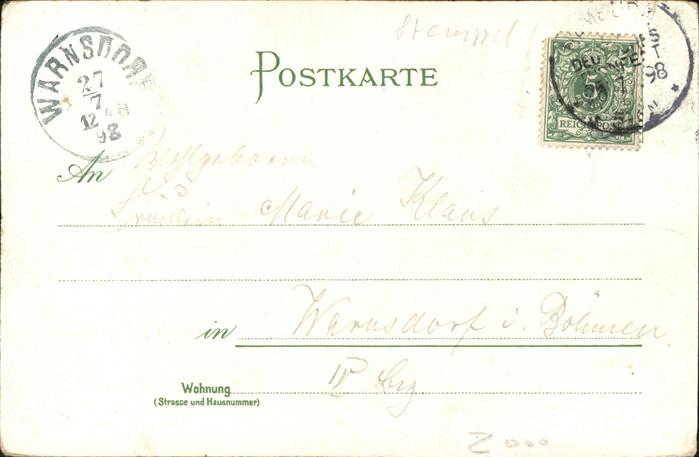 Stempel!
POSTKARTE
WARNSDORF
27
7
12
98
5
REICHSPOST
98
An
Wohlgeboren
Fräulein Marie Klaus
in Warnsdorf i. Böhmen
IV Bez
Wohnung
(Strasse und Hausnummer)